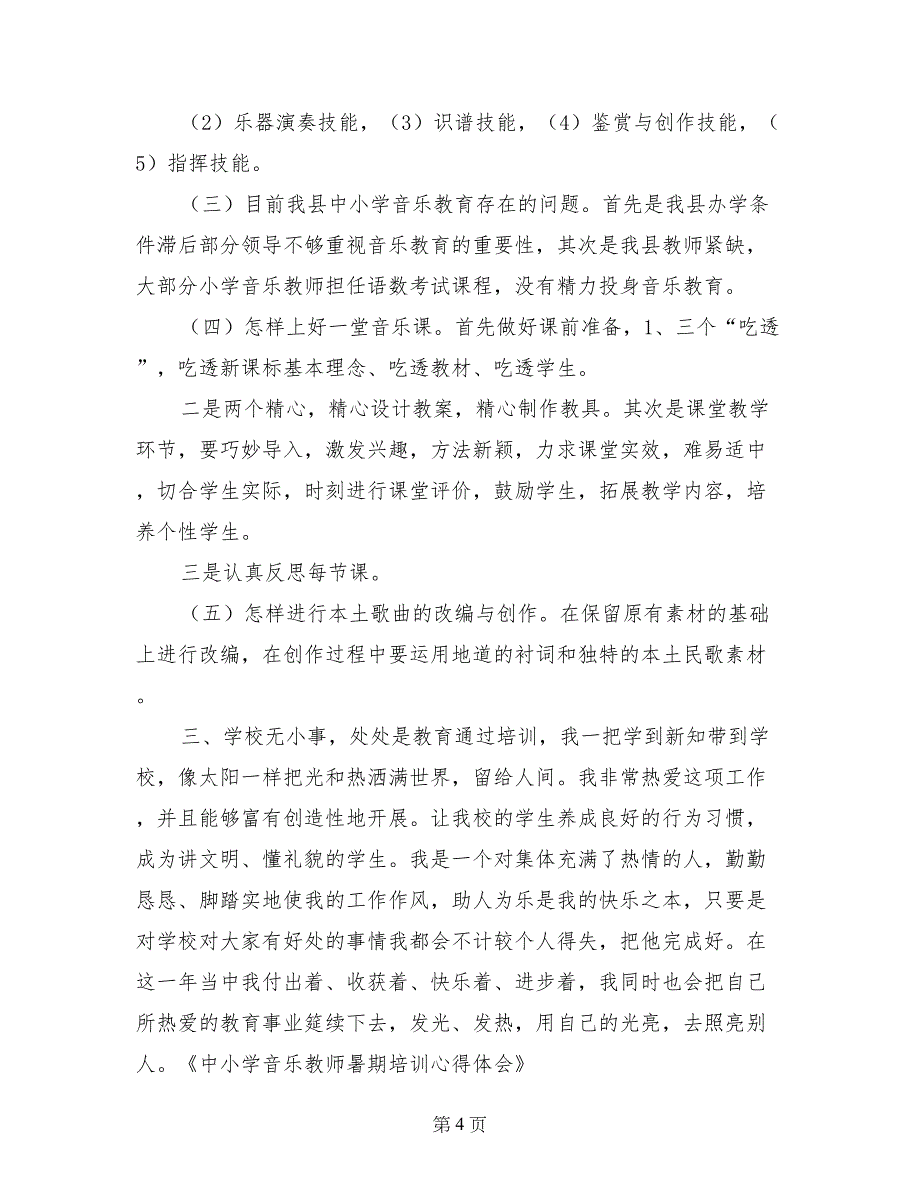 （2）乐器演奏技能，（3）识谱技能，（4）鉴赏与创作技能，（
5）指挥技能。
（三）目前我县中小学音乐教育存在的问题。首先是我县办学条
件滞后部分领导不够重视音乐教育的重要性，其次是我县教师紧缺，
大部分小学音乐教师担任语数考试课程，没有精力投身音乐教育。
（四）怎样上好一堂音乐课。首先做好课前准备，1、三个“吃透
”，吃透新课标基本理念、吃透教材、吃透学生。
二是两个精心，精心设计教案，精心制作教具。其次是课堂教学
环节，要巧妙导入，激发兴趣，方法新颖，力求课堂实效，难易适中
，切合学生实际，时刻进行课堂评价，鼓励学生，拓展教学内容，培
养个性学生。
三是认真反思每节课。
（五）怎样进行本土歌曲的改编与创作。在保留原有素材的基础
上进行改编，在创作过程中要运用地道的衬词和独特的本土民歌素材
。
三、学校无小事，处处是教育通过培训，我一把学到新知带到学
校，像太阳一样把光和热洒满世界，留给人间。我非常热爱这项工作
，并且能够富有创造性地开展。让我校的学生养成良好的行为习惯，
成为讲文明、懂礼貌的学生。我是一个对集体充满了热情的人，勤勤
恳恳、脚踏实地使我的工作作风，助人为乐是我的快乐之本，只要是
对学校对大家有好处的事情我都会不计较个人得失，把他完成好。在
这一年当中我付出着、收获着、快乐着、进步着，我同时也会把自己
所热爱的教育事业筵续下去，发光、发热，用自己的光亮，去照亮别
人。《中小学音乐教师暑期培训心得体会》
第 4 页